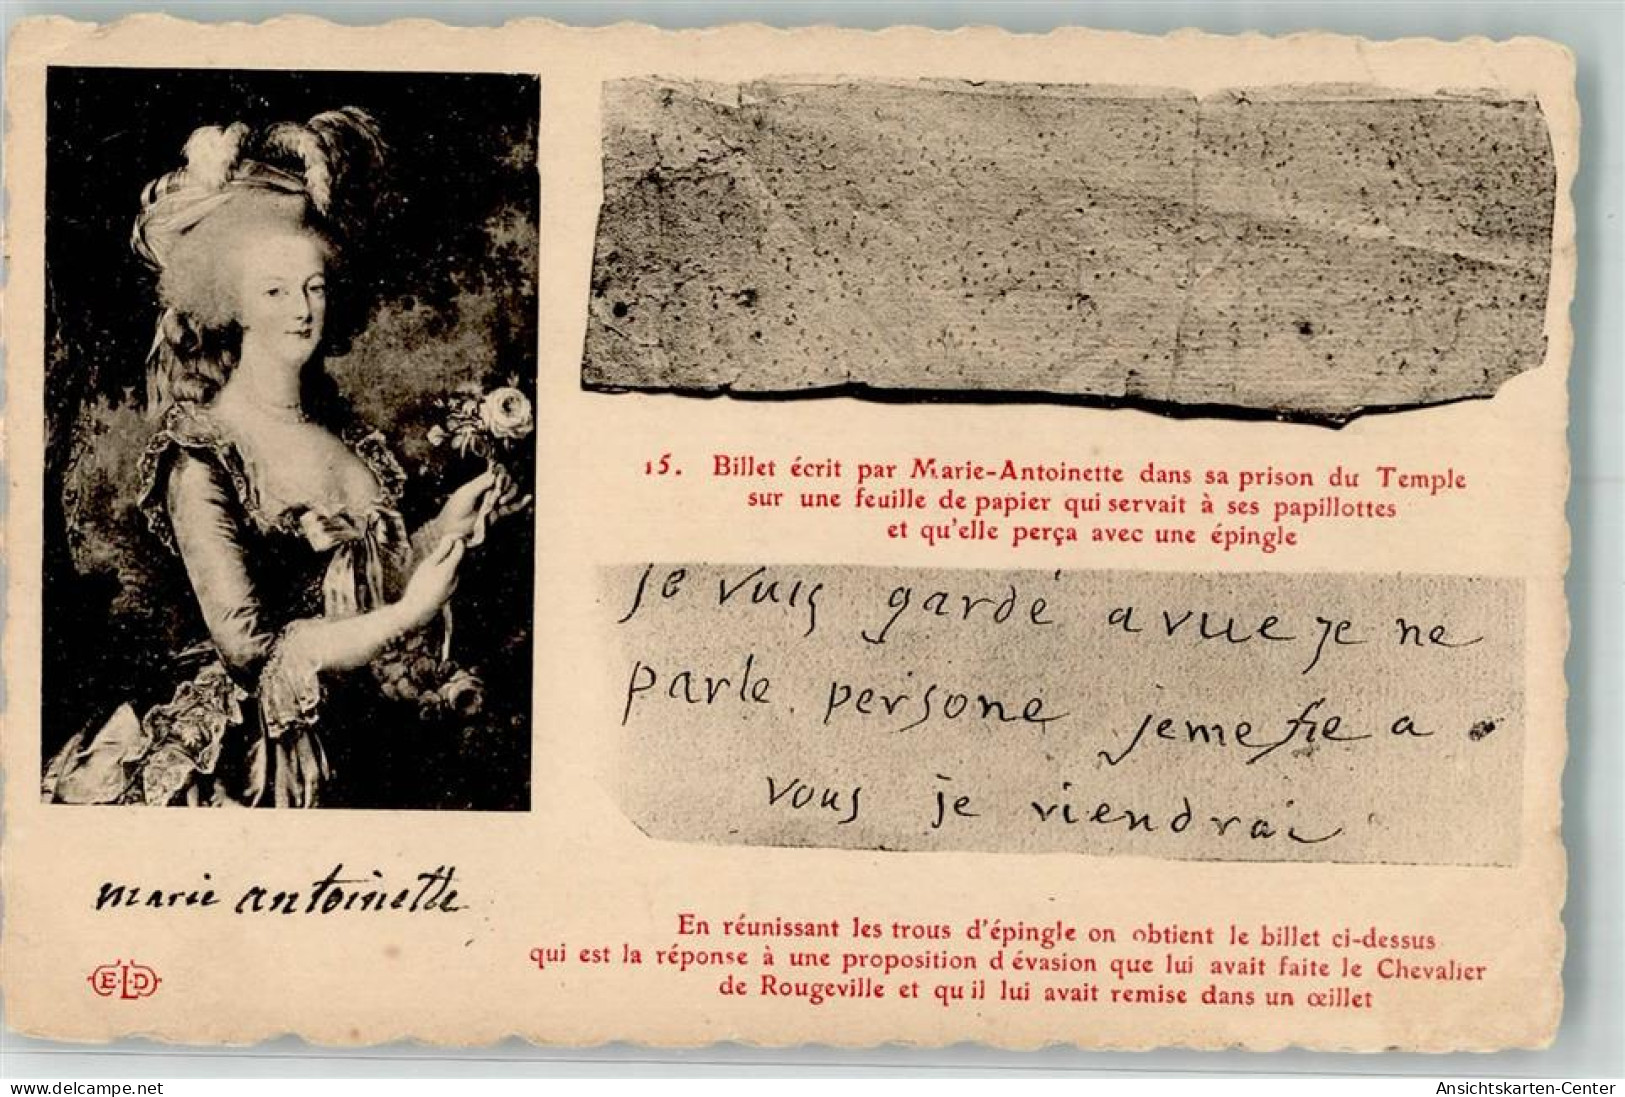 15. Billet écrit par Marie-Antoinette dans sa prison du Temple
sur une feuille de papier qui servait à ses papillottes
et qu'elle perça avec une épingle
je vuis gardé a vue je ne
parle persone jeme fie a
vous je viendrai
marie antoinette
E.L.D
En réunissant les trous d'épingle on obtient le billet ci-dessus
qui est la réponse à une proposition d évasion que lui avait faite le Chevalier
de Rougeville et qu il lui avait remise dans un œillet
www.delcampe.net
Ansichtskarten-Center